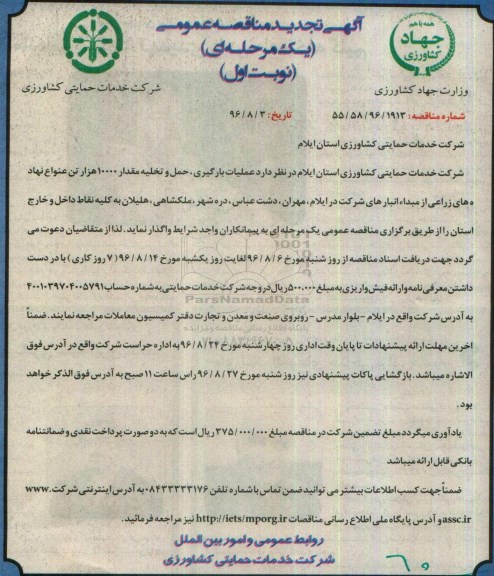 آگهی تجدید مناقصه عمومی
(یک مرحله ای)
(نوبت اول)
همه با هم
جهاد
کشاورزی
وزارت جهاد کشاورزی
شرکت خدمات حمایتی کشاورزی
شماره مناقصه : ۵۵/۵۸/۹۶/۱۹۱۳
تاریخ : ۹۶/۸/۳
شرکت خدمات حمایتی کشاورزی استان ایلام
شرکت خدمات حمایتی کشاورزی استان ایلام در نظر دارد عملیات بارگیری ، حمل و تخلیه مقدار ۱۰۰۰۰ هزار تن عنواع نهاد
ه های زراعی از مبداء انبار های شرکت در ایلام ، مهران ، دشت عباس ، دره شهر ، ملکشاهی ، هلیلان به کلیه نقاط داخل و خارج
استان را از طریق برگزاری مناقصه عمومی یک مرحله ای به پیمانکاران واجد شرایط واگذار نماید . لذا از متقاضیان دعوت می
گردد جهت دریافت اسناد مناقصه از روز شنبه مورخ ۹۶/۸/۶ لغایت روز یکشبه مورخ ۹۶/۸/۱۴ (۷ روز کاری ) با در دست
داشتن معرفی نامه وارائه فیش واریزی به مبلغ ۵۰۰.۰۰۰ ریال در وجه شرکت خدمات حمایتی به شماره حساب ۴۰۰۱۰۳۹۷۰۴۰۰۵۷۹۱
به آدرس شرکت واقع در ایلام -بلوار مدرس - روبروی صنعت و معدن و تجارت دفتر کمیسیون معاملات مراجعه نمایند . ضمناً
اخرین مهلت ارائه پیشنهادات تا پایان وقت اداری روز چهار شنبه مورخ ۹۶/۸/۲۴ به اداره حراست شرکت واقع در آدرس فوق
الاشاره میباشد . بازگشایی پاکات پیشنهادی نیز روز شنبه مورخ ۹۶/۸/۲۷ راس ساعت ۱۱ صبح به آدرس فوق الذکر خواهد
بود .
یادآوری میگردد مبلغ تضمین شرکت در مناقصه مبلغ ۳۷۵/۰۰۰/۰۰۰ ریال است که به دو صورت پرداخت نقدی و ضمانتنامه
بانکی قابل ارائه میباشد
ضمناً جهت کسب اطلاعات بیشتر می توانید ضمن تماس با شماره تلفن ۰۸۴۳۳۳۳۳۱۷۶ به آدرس اینترنتی شرکت .www
assc.ir و آدرس پایگاه ملی اطلاع رسانی مناقصات http://iets/mporg.ir نیز مراجعه فرمائید .
روابط عمومی و امور بین الملل
شرکت خدمات حمایتی کشاورزی
ParsNamadData
۶۰